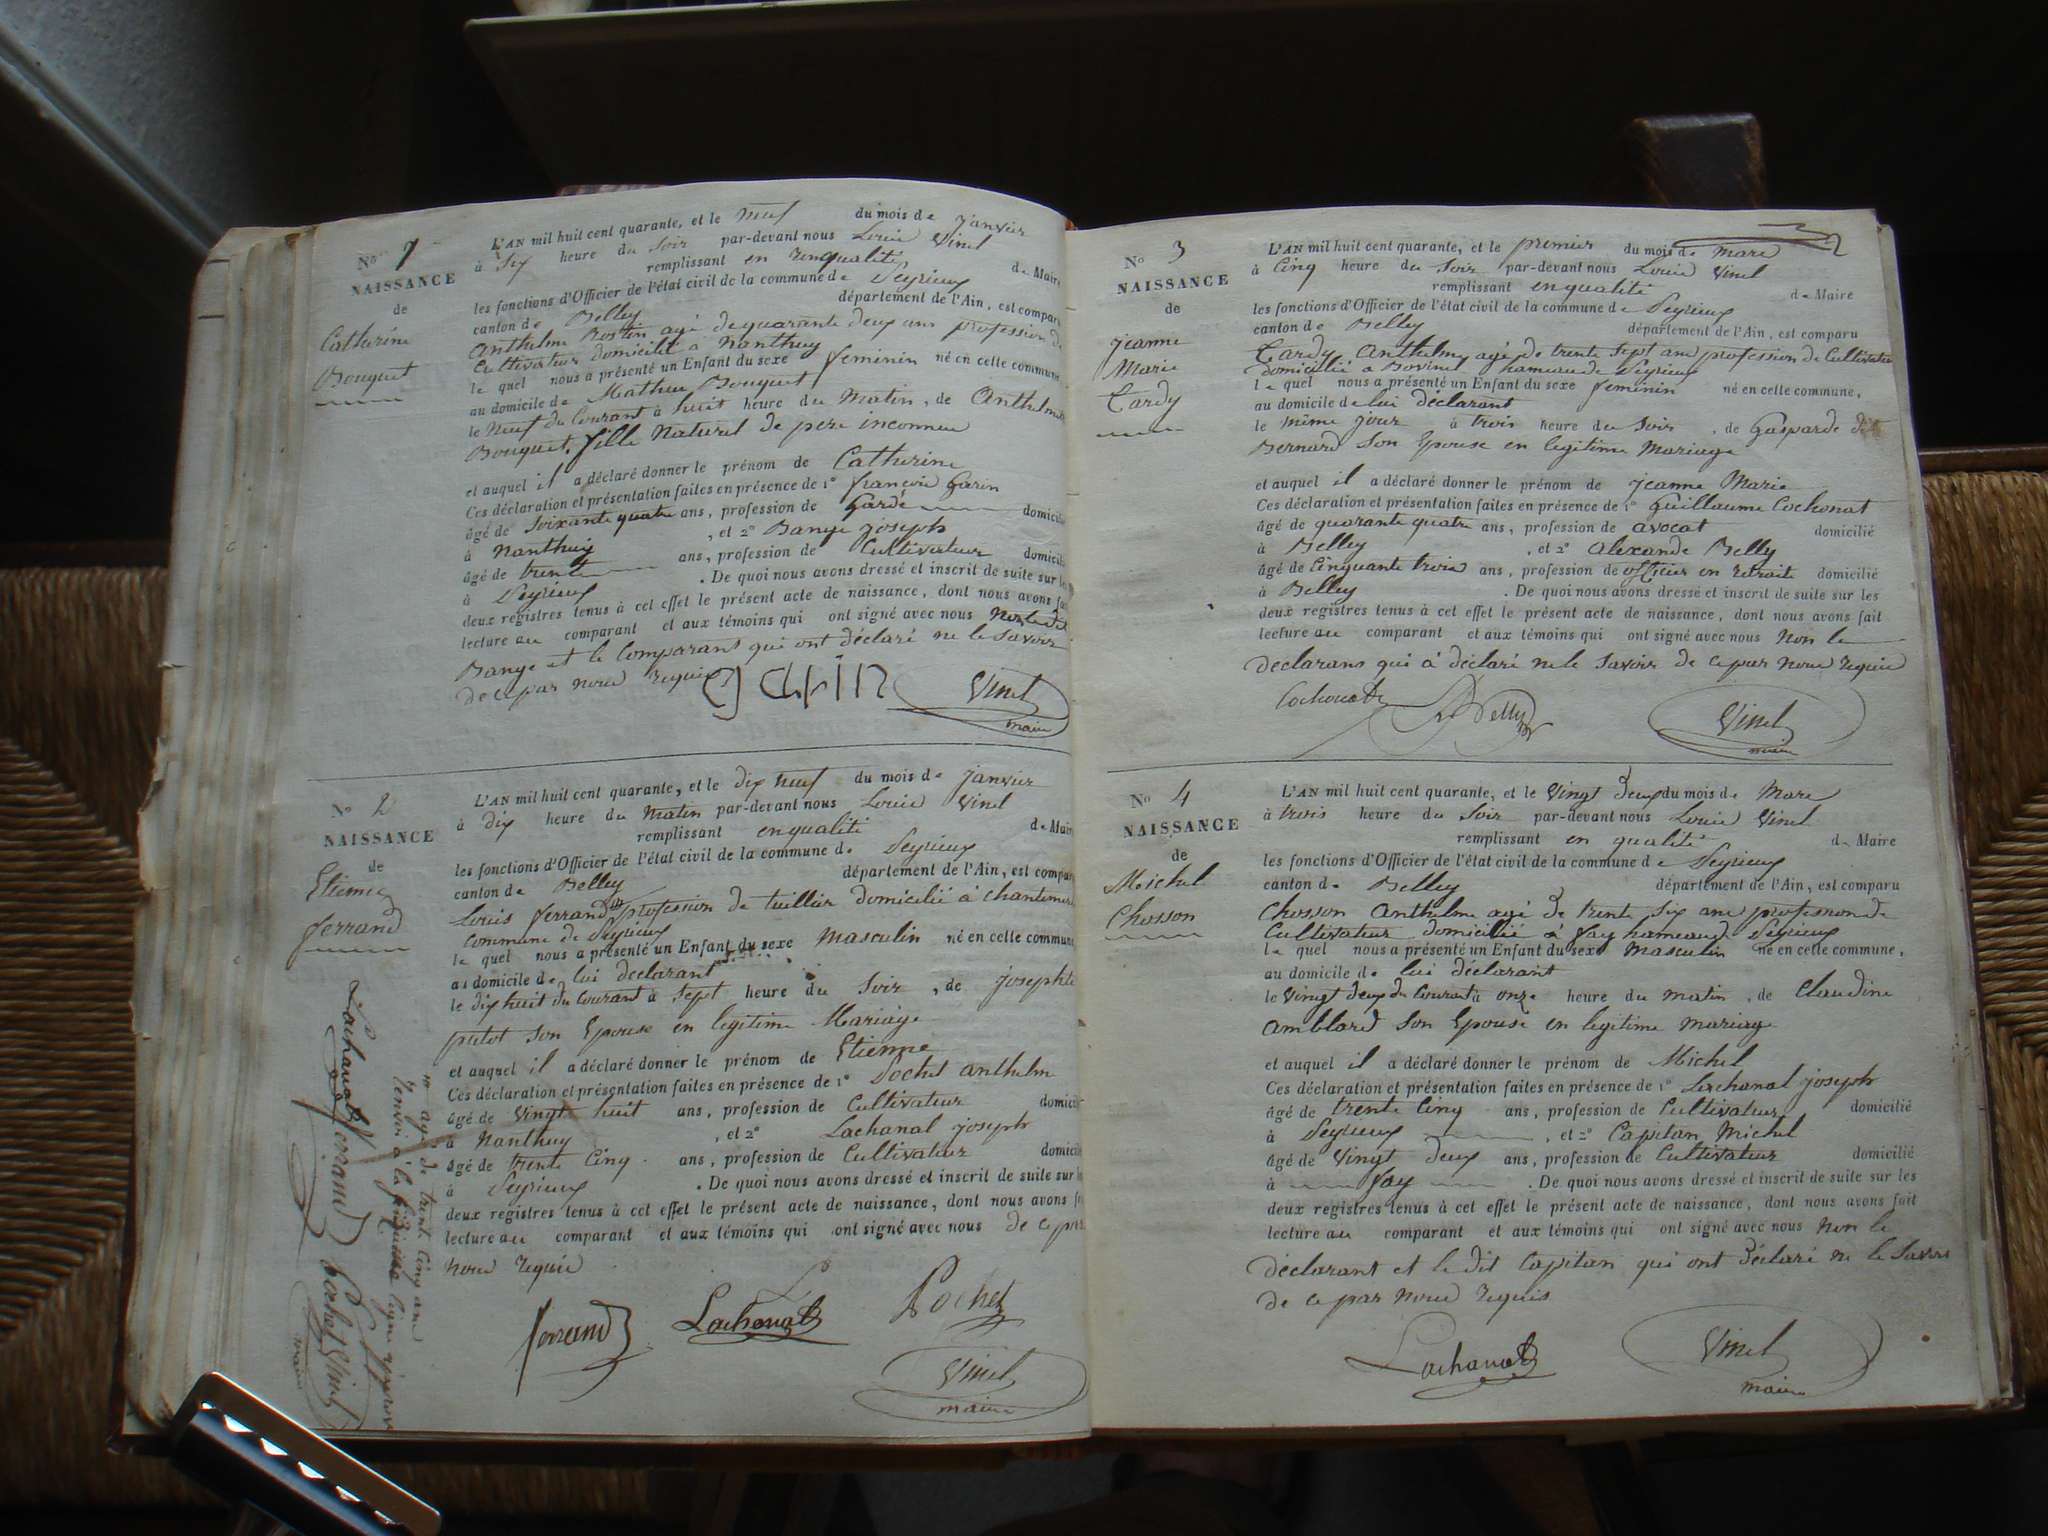 No 1
NAISSANCE
de
Catherine
Bouquet
L'AN mil huit cent quarante, et le neuf du mois de janvier
à six heure du soir par-devant nous Louis Vinel
remplissant en qualité de Maire
les fonctions d'Officier de l'état civil de la commune de Peyrieux
canton de Belley département de l'Ain, est comparu
Anthelme Rostin agé de quarante deux ans profession de
Cultivateur domicilié à Nanthuy
le quel nous a présenté un Enfant du sexe feminin né en cette commune
au domicile de Mathieu Bouquet
le Neuf du Courant à huit heure du Matin, de Anthelmette
Bouquet, fille naturel de pere inconnu
et auquel il a déclaré donner le prénom de Catherine
Ces déclaration et présentation faites en présence de 1° françois Garin
âgé de soixante quatre ans, profession de Garde domicilié
à Nanthuy, et 2° Bange joseph
âgé de trente ans, profession de Cultivateur domicilié
à Peyrieux . De quoi nous avons dressé et inscrit de suite sur les
deux registres tenus à cet effet le présent acte de naissance, dont nous avons fait
lecture au comparant et aux témoins qui ont signé avec nous Non ledit
Bange et le Comparant qui ont déclaré ne le savoir
de ce par nous requis
Vinel
maire
No 2
NAISSANCE
de
Etienne
ferrand
L'AN mil huit cent quarante, et le dix neuf du mois de janvier
à dix heure du Matin par-devant nous Louis Vinel
remplissant en qualité de Maire
les fonctions d'Officier de l'état civil de la commune de Peyrieux
canton de Belley département de l'Ain, est comparu
Louis ferrand profession de tuillier domicilié à chantemerle
commune de Peyrieux
le quel nous a présenté un Enfant du sexe masculin né en cette commune
au domicile de lui declarant
le dix huit du Courant à sept heure du soir, de josephte
putot son Epouse en legitime Mariage
et auquel il a déclaré donner le prénom de Etienne
Ces déclaration et présentation faites en présence de 1° Pochet anthelme
âgé de vingt huit ans, profession de Cultivateur domicilié
à Nanthuy, et 2° Lachanal joseph
âgé de trente Cinq ans, profession de Cultivateur domicilié
à Peyrieux . De quoi nous avons dressé et inscrit de suite sur les
deux registres tenus à cet effet le présent acte de naissance, dont nous avons fait
lecture au comparant et aux témoins qui ont signé avec nous de ce par
nous requis
ferrand Lachanal Pochet
Vinel
maire
agé de trente cinq ans
Lachanal ferrand Pochet Vinel
maire
No 3
NAISSANCE
de
jeanne
Marie
Tardy
L'AN mil huit cent quarante, et le premier du mois de mars
à Cinq heure du soir par-devant nous Louis Vinel
remplissant en qualité de Maire
les fonctions d'Officier de l'état civil de la commune de Peyrieux
canton de Belley département de l'Ain, est comparu
Tardy Anthelme agé de trente sept ans profession de Cultivateur
domicilié à Bovinel hameau de Peyrieux
le quel nous a présenté un Enfant du sexe feminin né en cette commune,
au domicile de lui déclarant
le même jour à trois heure du soir, de Gasparde dit
Bernard son Epouse en legitime Mariage
et auquel il a déclaré donner le prénom de jeanne Marie
Ces déclaration et présentation faites en présence de 1° Guillaume Cochonat
âgé de quarante quatre ans, profession de avocat domicilié
à Belley, et 2° alexande Belly
âgé de Cinquante trois ans, profession de officier en retraite domicilié
à Belley . De quoi nous avons dressé et inscrit de suite sur les
deux registres tenus à cet effet le présent acte de naissance, dont nous avons fait
lecture au comparant et aux témoins qui ont signé avec nous Non le
déclarans qui à déclaré ne le savoir de ce par nous requis
Belly Vinel
maire
No 4
NAISSANCE
de
Michel
Chosson
L'AN mil huit cent quarante, et le vingt deux du mois de Mars
à trois heure du soir par-devant nous Louis Vinel
remplissant en qualité de Maire
les fonctions d'Officier de l'état civil de la commune de Peyrieux
canton de Belley département de l'Ain, est comparu
Chosson Anthelme agé de trente six ans profession de
Cultivateur domicilié à fay hameau de Peyrieux
le quel nous a présenté un Enfant du sexe Masculin né en cette commune,
au domicile de lui déclarant
le vingt deux du Courant à onze heure du matin, de Claudine
Amblard son Epouse en legitime mariage
et auquel il a déclaré donner le prénom de Michel
Ces déclaration et présentation faites en présence de 1° Lachanal joseph
âgé de trente Cinq ans, profession de Cultivateur domicilié
à Peyrieux, et 2° Capitan Michel
âgé de vingt deux ans, profession de Cultivateur domicilié
à fay . De quoi nous avons dressé et inscrit de suite sur les
deux registres tenus à cet effet le présent acte de naissance, dont nous avons fait
lecture au comparant et aux témoins qui ont signé avec nous Non le
déclarant et le dit Capitan qui ont déclaré ne le savoir
de ce par nous requis
Lachanal Vinel
maire